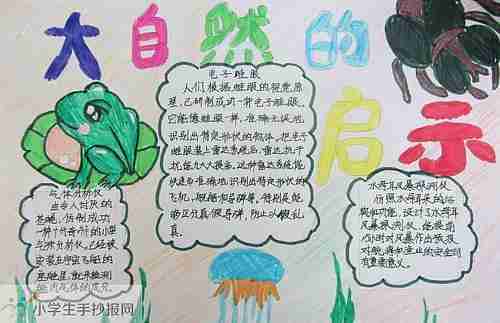 大自然的
启示
电子蛙眼
人们根据蛙眼的视觉原
理,已研制成功一种电子蛙眼。
它能像蛙眼一样,准确无误地
识别出特定形状的物体。把电子
蛙眼装入雷达系统后,雷达抗干
扰能力大大提高。这种雷达系统能
快速而准确地识别出特定形状的
飞机、舰船和导弹等。特别是能
够区分真假导弹,防止以假乱
真。
气体分析仪
令人讨厌的
苍蝇,仿制成功
一种十分奇特的小型
气体分析仪。已经被
安装在宇宙飞船的
座舱里,用来检测
舱内气体的成分。
水母耳风暴预测仪
仿照水母耳朵的结
构和功能,设计了水母耳
风暴预测仪,能提前
15小时对风暴作出预报,
对航海和渔业的安全都
有重要意义。
小学生手抄报网